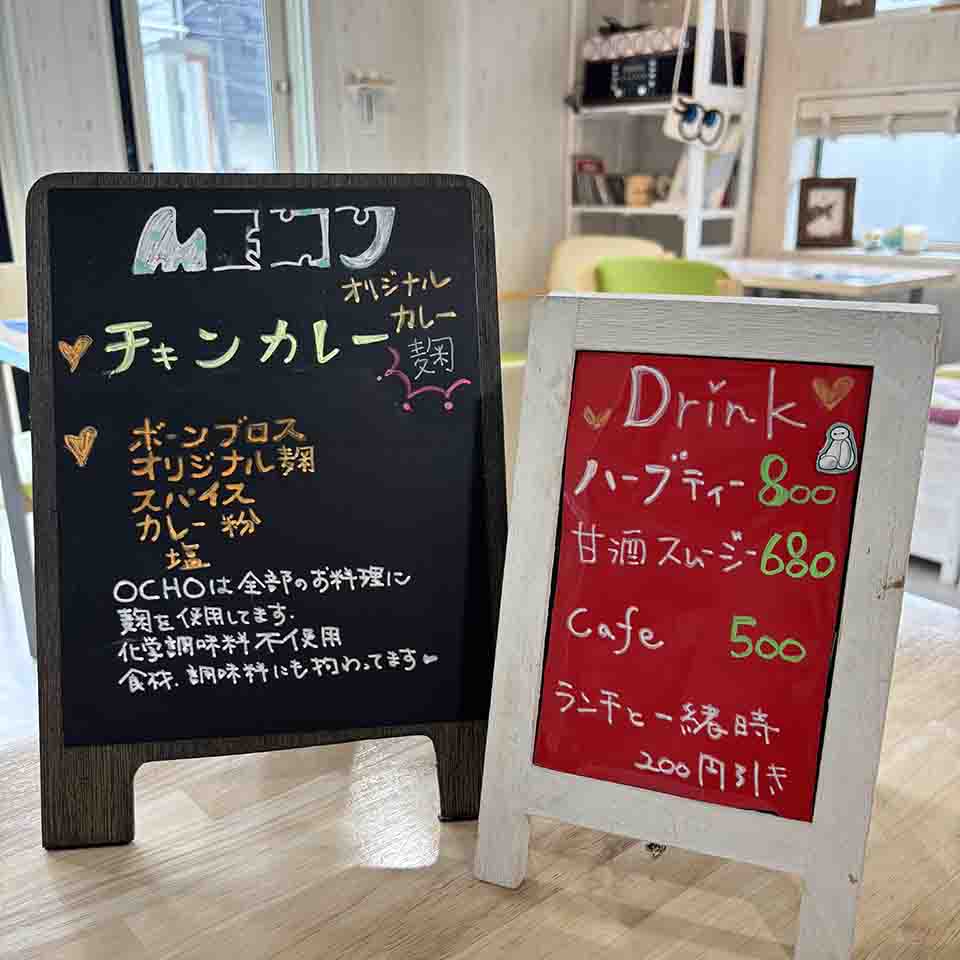 オリジナル
カレー
麹
チキンカレー
ボーンブロス
オリジナル麹
スパイス
カレー粉
塩
OCHOは全部のお料理に
麹を使用してます.
化学調味料不使用
食材.調味料にも拘わってます
Drink
ハーブティー 800
甘酒スムージー 680
Cafe 500
ランチと一緒時
200円引き